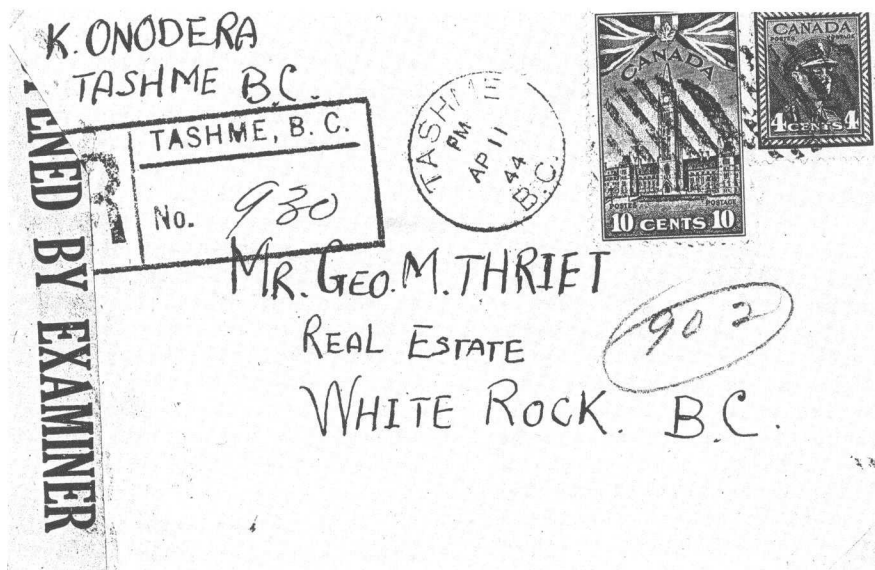 K. ONODERA
TASHME B.C.
ENED BY EXAMINER
R
TASHME, B. C.
No. 930
TASHME
PM
AP 11
44
B.C.
CANADA
POSTES POSTAGE
10 CENTS 10
CANADA
POSTES POSTAGE
4 CENTS 4
MR. GEO. M. THRIFT
REAL ESTATE
902
WHITE ROCK. B.C.